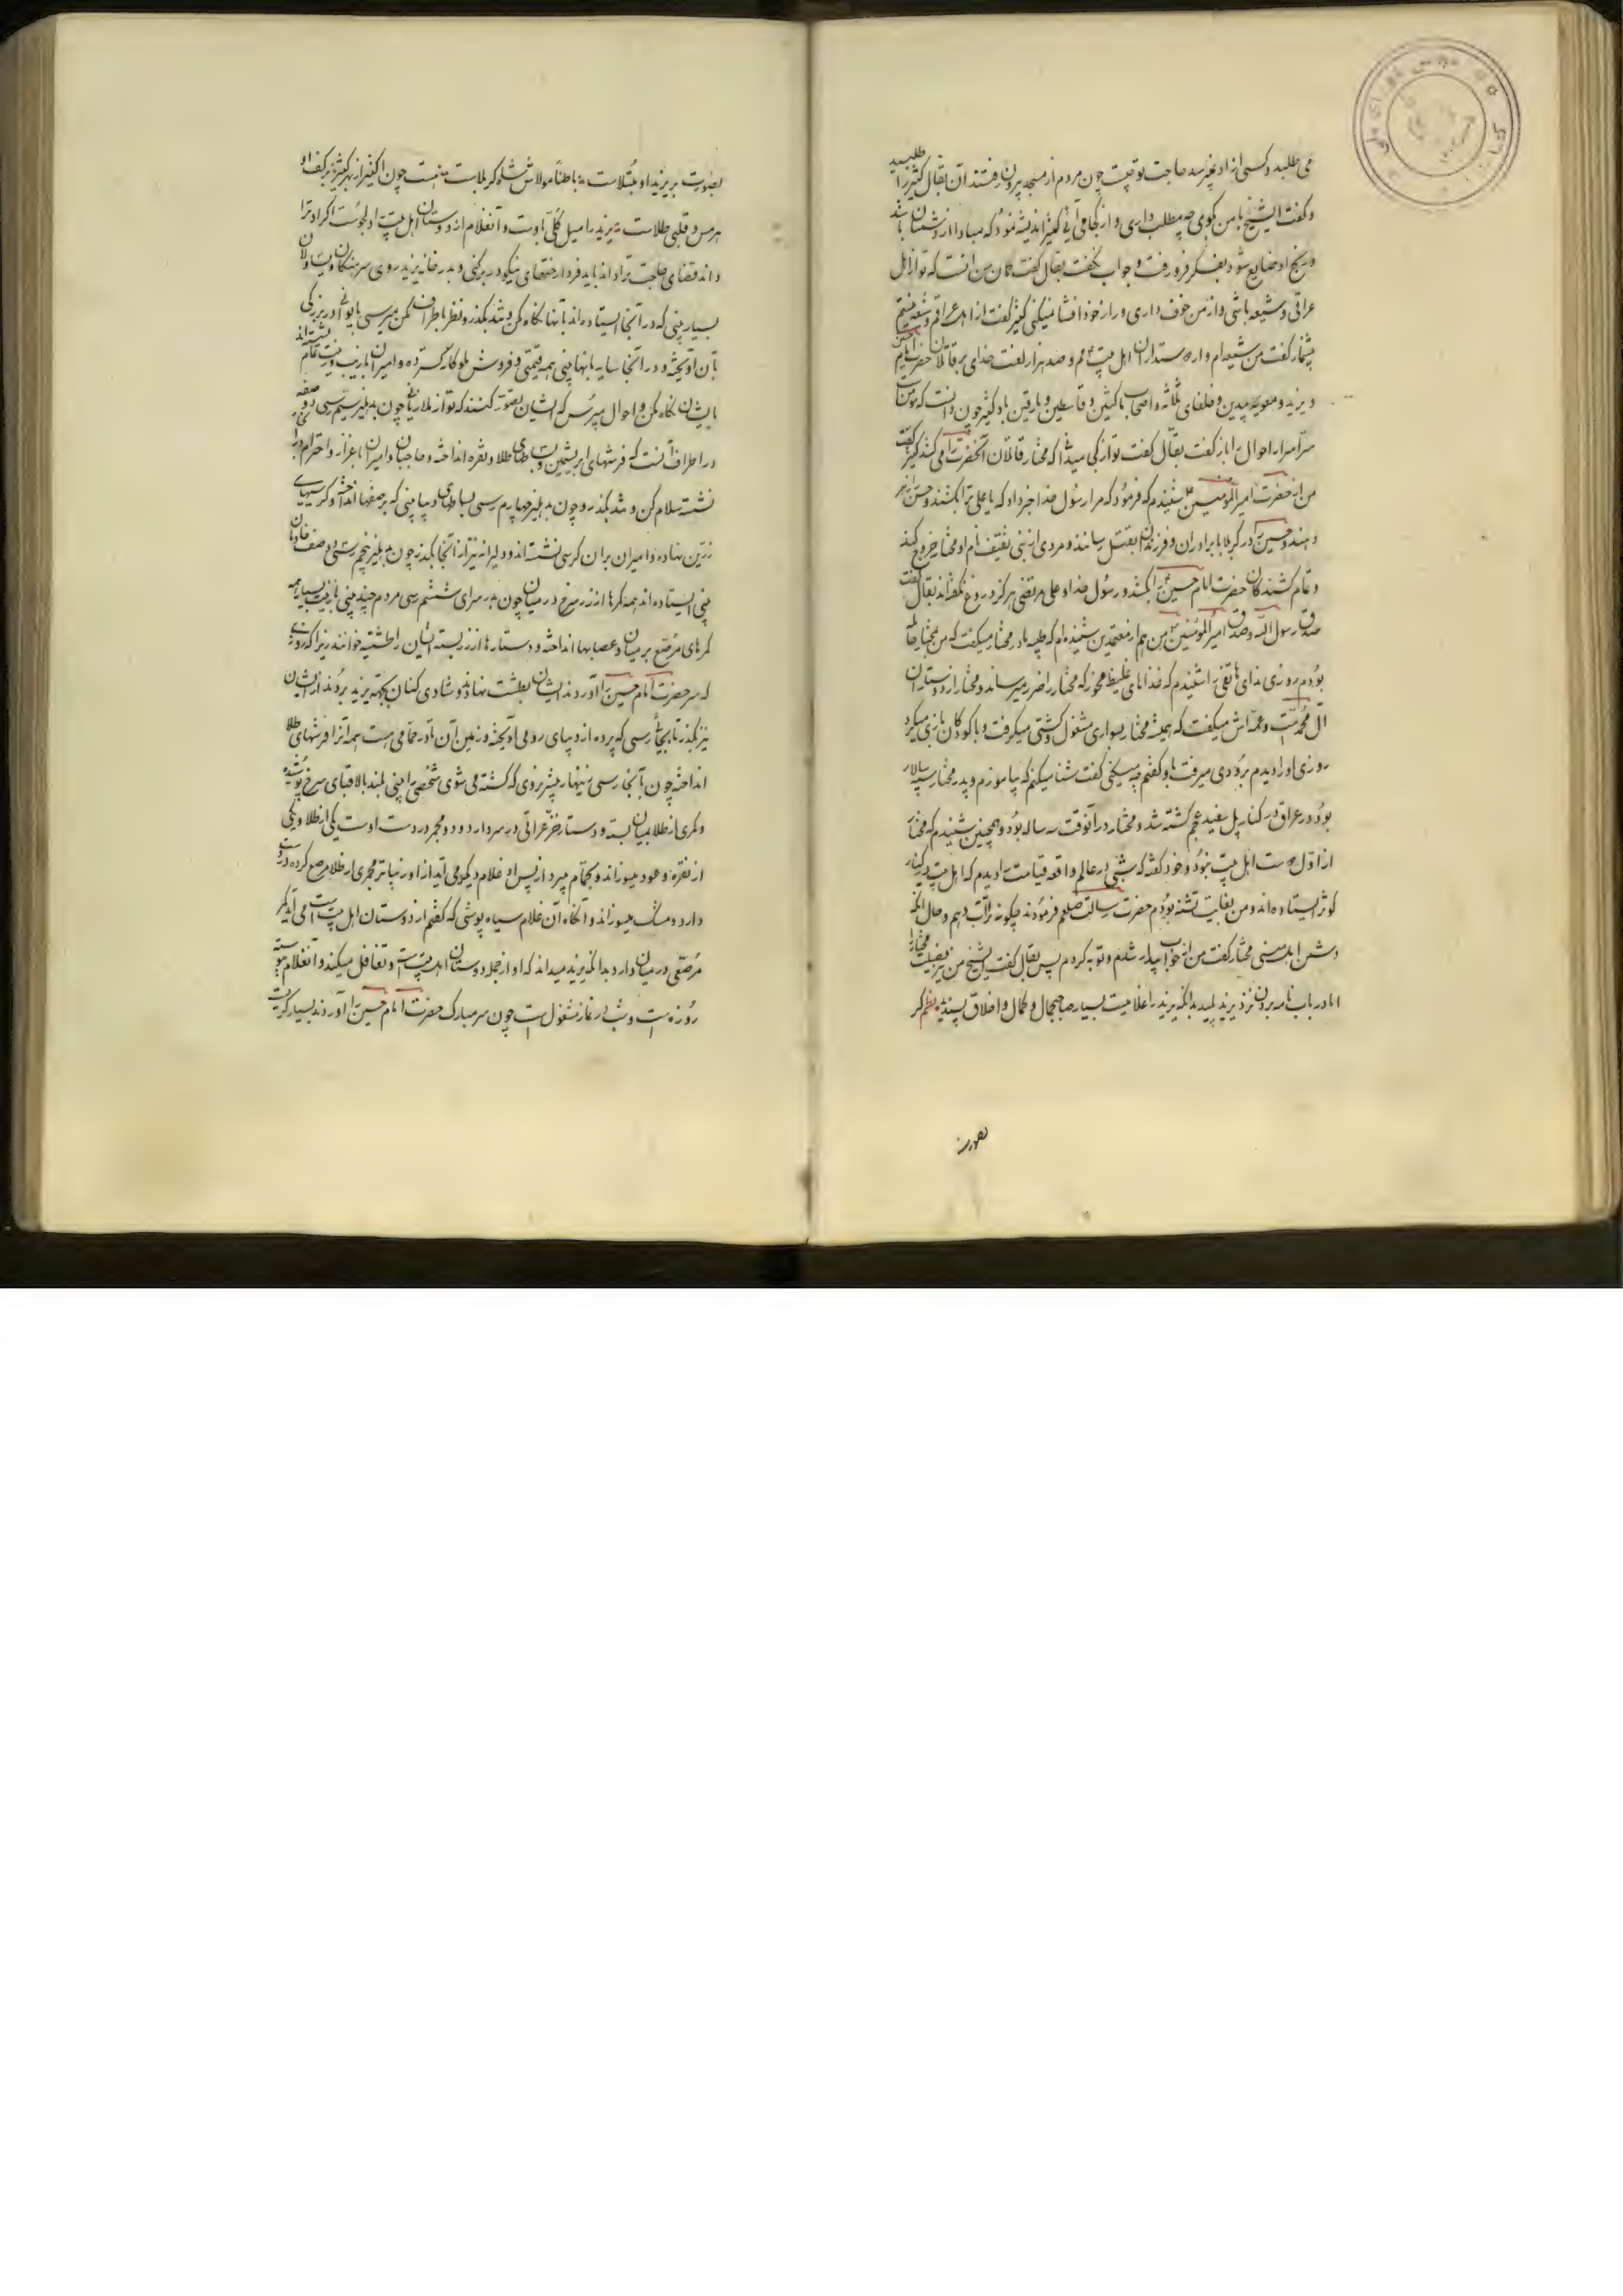 می طلبد و کسی از او نمیپرسد حاجت تو چیست چون مردم از مسجد بیرون رفتند آن بقال کثیر را طلبید
و گفت ایشیخ با من بگوی چه مطلب داری و از کجا می آئی کثیر اندیشه نمود که مبادا از دشمنان باشد
و رنج او ضایع شود بفکر فرو رفت و جواب نگفت بقال گفت گمان من آنست که تو از اهل
عراقی و شیعه باشی و از من خوف داری و راز خود افشا نمیکنی کثیر گفت از اهل عراقم و شیعه نیستم
گفت من شیعه ام و از دوستداران اهل بیتم و صد هزار لعنت خدای بر قاتلان حضرت امام حسین
و یزید و معویه پلیدین و خلفای ثلاثه و اصحاب ناکثین و قاسطین و مارقین باد کثیر چون دانست که مومنست
سراسر احوال را باز گفت بقال گفت تو از کی میدانی که مختار قاتلان آنحضرت را می کشد کثیر گفت
من از حضرت امیر المؤمنین شنیدم که فرمود که مرا رسول خدا خبر داد که یا علی ترا بکشند و حسن را زهر
دهند و حسین را در کربلا با برادران و فرزندان بقتل رسانند و مردی از بنی ثقیف نام او مختار خروج کند
و تمام کشندگان حضرت امام حسین را بکشد و رسول خدا و علی مرتضی هرگز دروغ نگفته اند بقال گفت
صدق رسول الله و صدق امیر المؤمنین من هم از معتمدین شنیده ام که مادر مختار میگفت که من بمختار حامله
بودم روزی ندای هاتفی را شنیدم که غذاهای غلیظ مخور که مختار را ضرر میرساند و مختار از دوستان
آل محمد است و عمه اش میگفت که همیشه مختار بسواری مشغول و کشتی میگرفت و با کودکان بازی میکرد
روزی او را دیدم برودی میرفت باو گفتم چه میکنی گفت شنا میکنم که بیاموزم و پدر مختار سپه سالار
بود در عراق در کنار پل سفید عجم کشته شد و مختار در آنوقت سه ساله بود و همچنین شنیدم که مختار
از اول دوست اهل بیت نبود و خود گفته که شبی در عالم واقعه قیامت را دیدم که اهل بیت در کنار
کوثر ایستاده اند و من بغایت تشنه بودم حضرت رسالت صلعم فرمودند چگونه ترا آب دهیم و حال آنکه
دشمن اهل بیتی مختار گفت من از خواب بیدار شدم و توبه کردم پس بقال گفت ایشیخ من نیز فضیلت مختار را
اما در باب نامه بردن نزد یزید پلید بدانکه یزید را غلامیست بسیار صاحب جمال و کمال و اخلاق پسندیده نظم گر
بصورت
بصورت بر یزید او مبتلاست باطناً مولاش شاه کربلاست چون
هر مس قلبی طلاست یزید را میل کلی باوست و آنغلام از دوستان اهل بیت او را بجوئی اگر او ترا
داند قضای حاجت ترا داند باید فردا رختهای نیکو در بر کنی و بدر خانه یزید روی سرهنگان
بسیار بینی که در آنجا ایستاده اند بآنها نگاه مکن و تند بگذر و نظر باطراف مکن میرسی
بآن آویخته و در آنجا سایه بانها بینی همه قیمتی و فروش ملوکانه گسترده و امیران با زیب و زینت تمام نشسته اند
بایشان نگاه مکن و احوال مپرس که ایشان تصور کنند که تو از ملازمانی چون بدهلیز سیم رسی دو صفه
در اطراف آنست که فرشهای ابریشمین و بساطهای طلا و نقره انداخته و حاجبان و امیران باعزاز و احترام
نشسته سلام کن و تند بگذر و چون بدهلیز چهارم رسی بساطهای دیبا بینی که بر صفها انداخته و کرسیهای
زرین نهاده و امیران بر آن کرسی نشسته اند و دلیرانه نیز از آنجا بگذر چون بدهلیز پنجم رسی دو صف
بینی ایستاده اند همه کمرها از زر سرخ در میان چون بدر سرای ششم رسی مردم چند بینی با زینت بسیار همه
کمرهای مرصع بر میان و عصابها انداخته و دستارها از زر بسته ایشان را طشتیه خوانند زیرا که روزی
که سر حضرت امام حسین را آوردند ایشان بطشت نهاده و شادی کنان بجهة یزید بردند از ایشان
نیز بگذر تا بجائی رسی که پرده از دیبای رومی آویخته و زمین آن تا در حمامی هست همه آنرا فرشهای طلا
انداخته چون بآنجا رسی زینهار پیشتر نروی که کشته می شوی شخصی را بینی بلند بالا قبای سرخ پوشیده
و کمری از طلا بمیان بسته و دستار خز عراقی در سر دارد و دو مجمر در دست اوست یکی از طلا و یکی
از نقره و عود میسوزاند و بحمام میبرد از پس او غلام دیگر می آید از او زیباتر مجمری از طلا مرصع کرده در دست
دارد و مشک میسوزاند و آنگاه آن غلام سیاه پوشی که گفتم از دوستان اهل بیت است می آید کمر
مرصعی در میان دارد بدانکه یزید میداند که او از جمله دوستان اهل بیت است و تغافل میکند و آنغلام پیوسته
روزه است و شب در نماز مشغولست چون سر مبارک حضرت امام حسین را آوردند بسیار گریست